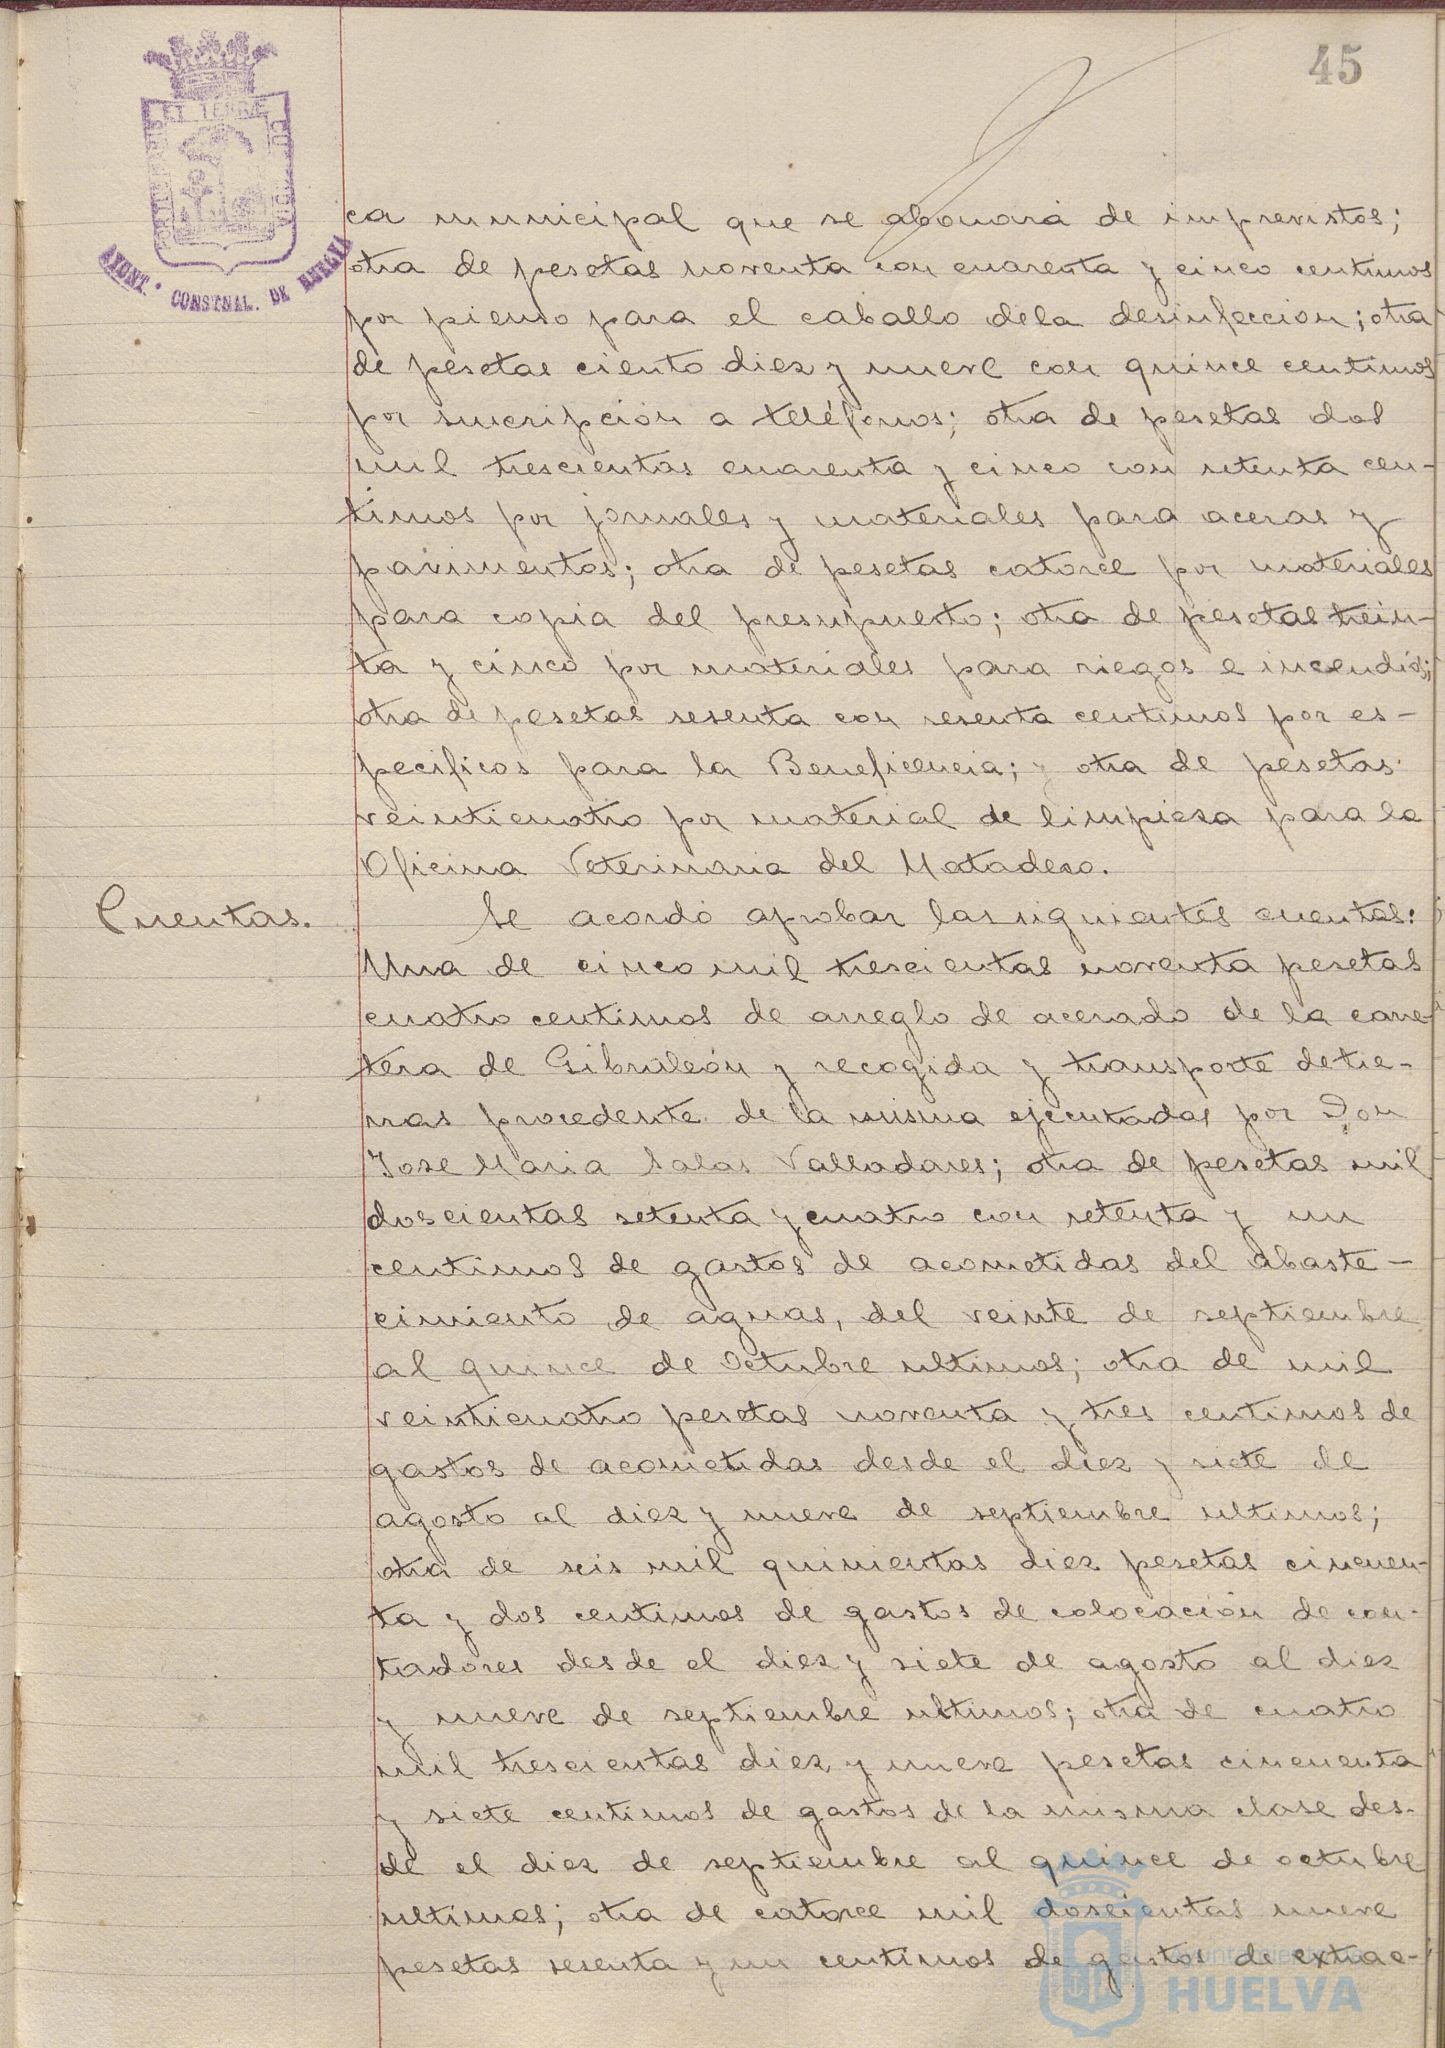 45
PORTUS MARIS ET TERRÆ CUSTODIA
AYONT. CONSTNAL. DE HUELVA
ca municipal que se abonará de imprevistos;
otra de pesetas noventa con cuarenta y cinco centimos
por pienso para el caballo dela desinfeccion; otra
de pesetas ciento diez y nueve con quince centimos
por suscripción a teléfonos; otra de pesetas dos
mil trescientas cuarenta y cinco con setenta cen-
timos por jornales y materiales para aceras y
pavimentos; otra de pesetas catorce por materiales
para copia del presupuesto; otra de pesetas trein-
ta y cinco por materiales para riegos e incendios;
otra de pesetas sesenta con sesenta centimos por es-
pecificos para la Beneficencia; y otra de pesetas
veinticuatro por material de limpieza para la
Oficina Veterinaria del Matadero.
Cuentas.
Se acordó aprobar las siguientes cuentas:
Una de cinco mil trescientas noventa pesetas
cuatro centimos de arreglo de acerado de la carre-
tera de Gibraleón y recogida y transporte de tie-
rras procedente de la misma ejecutadas por Don
Jose Maria Salas Valladares; otra de pesetas mil
doscientas setenta y cuatro con setenta y un
centimos de gastos de acometidas del abaste-
cimiento de aguas, del veinte de septiembre
al quince de Octubre ultimos; otra de mil
veinticuatro pesetas noventa y tres centimos de
gastos de acometidas desde el diez y siete de
agosto al diez y nueve de septiembre ultimos;
otra de seis mil quinientas diez pesetas cincuen-
ta y dos centimos de gastos de colocación de con-
tadores desde el diez y siete de agosto al diez
y nueve de septiembre ultimos; otra de cuatro
mil trescientas diez y nueve pesetas cincuenta
y siete centimos de gastos de la misma clase des-
de el diez de septiembre al quince de octubre
ultimos; otra de catorce mil doscientas nueve
pesetas sesenta y un centimos de gastos de extrac-
Ayuntamiento de
HUELVA